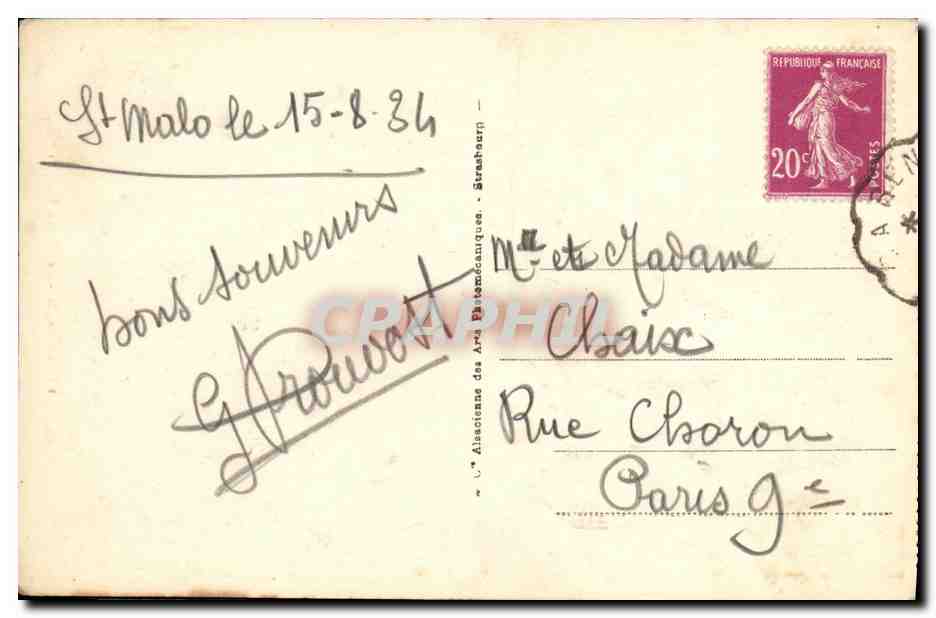 St Malo le 15-8-34
bons souvenirs
G Prouvost
Cie Alsacienne des Arts Photomécaniques. - Strasbourg -
REPUBLIQUE FRANÇAISE
20c
POSTES
A REN
Mr et Madame
Chaix
Rue Choron
Paris 9e
CRAPHIL